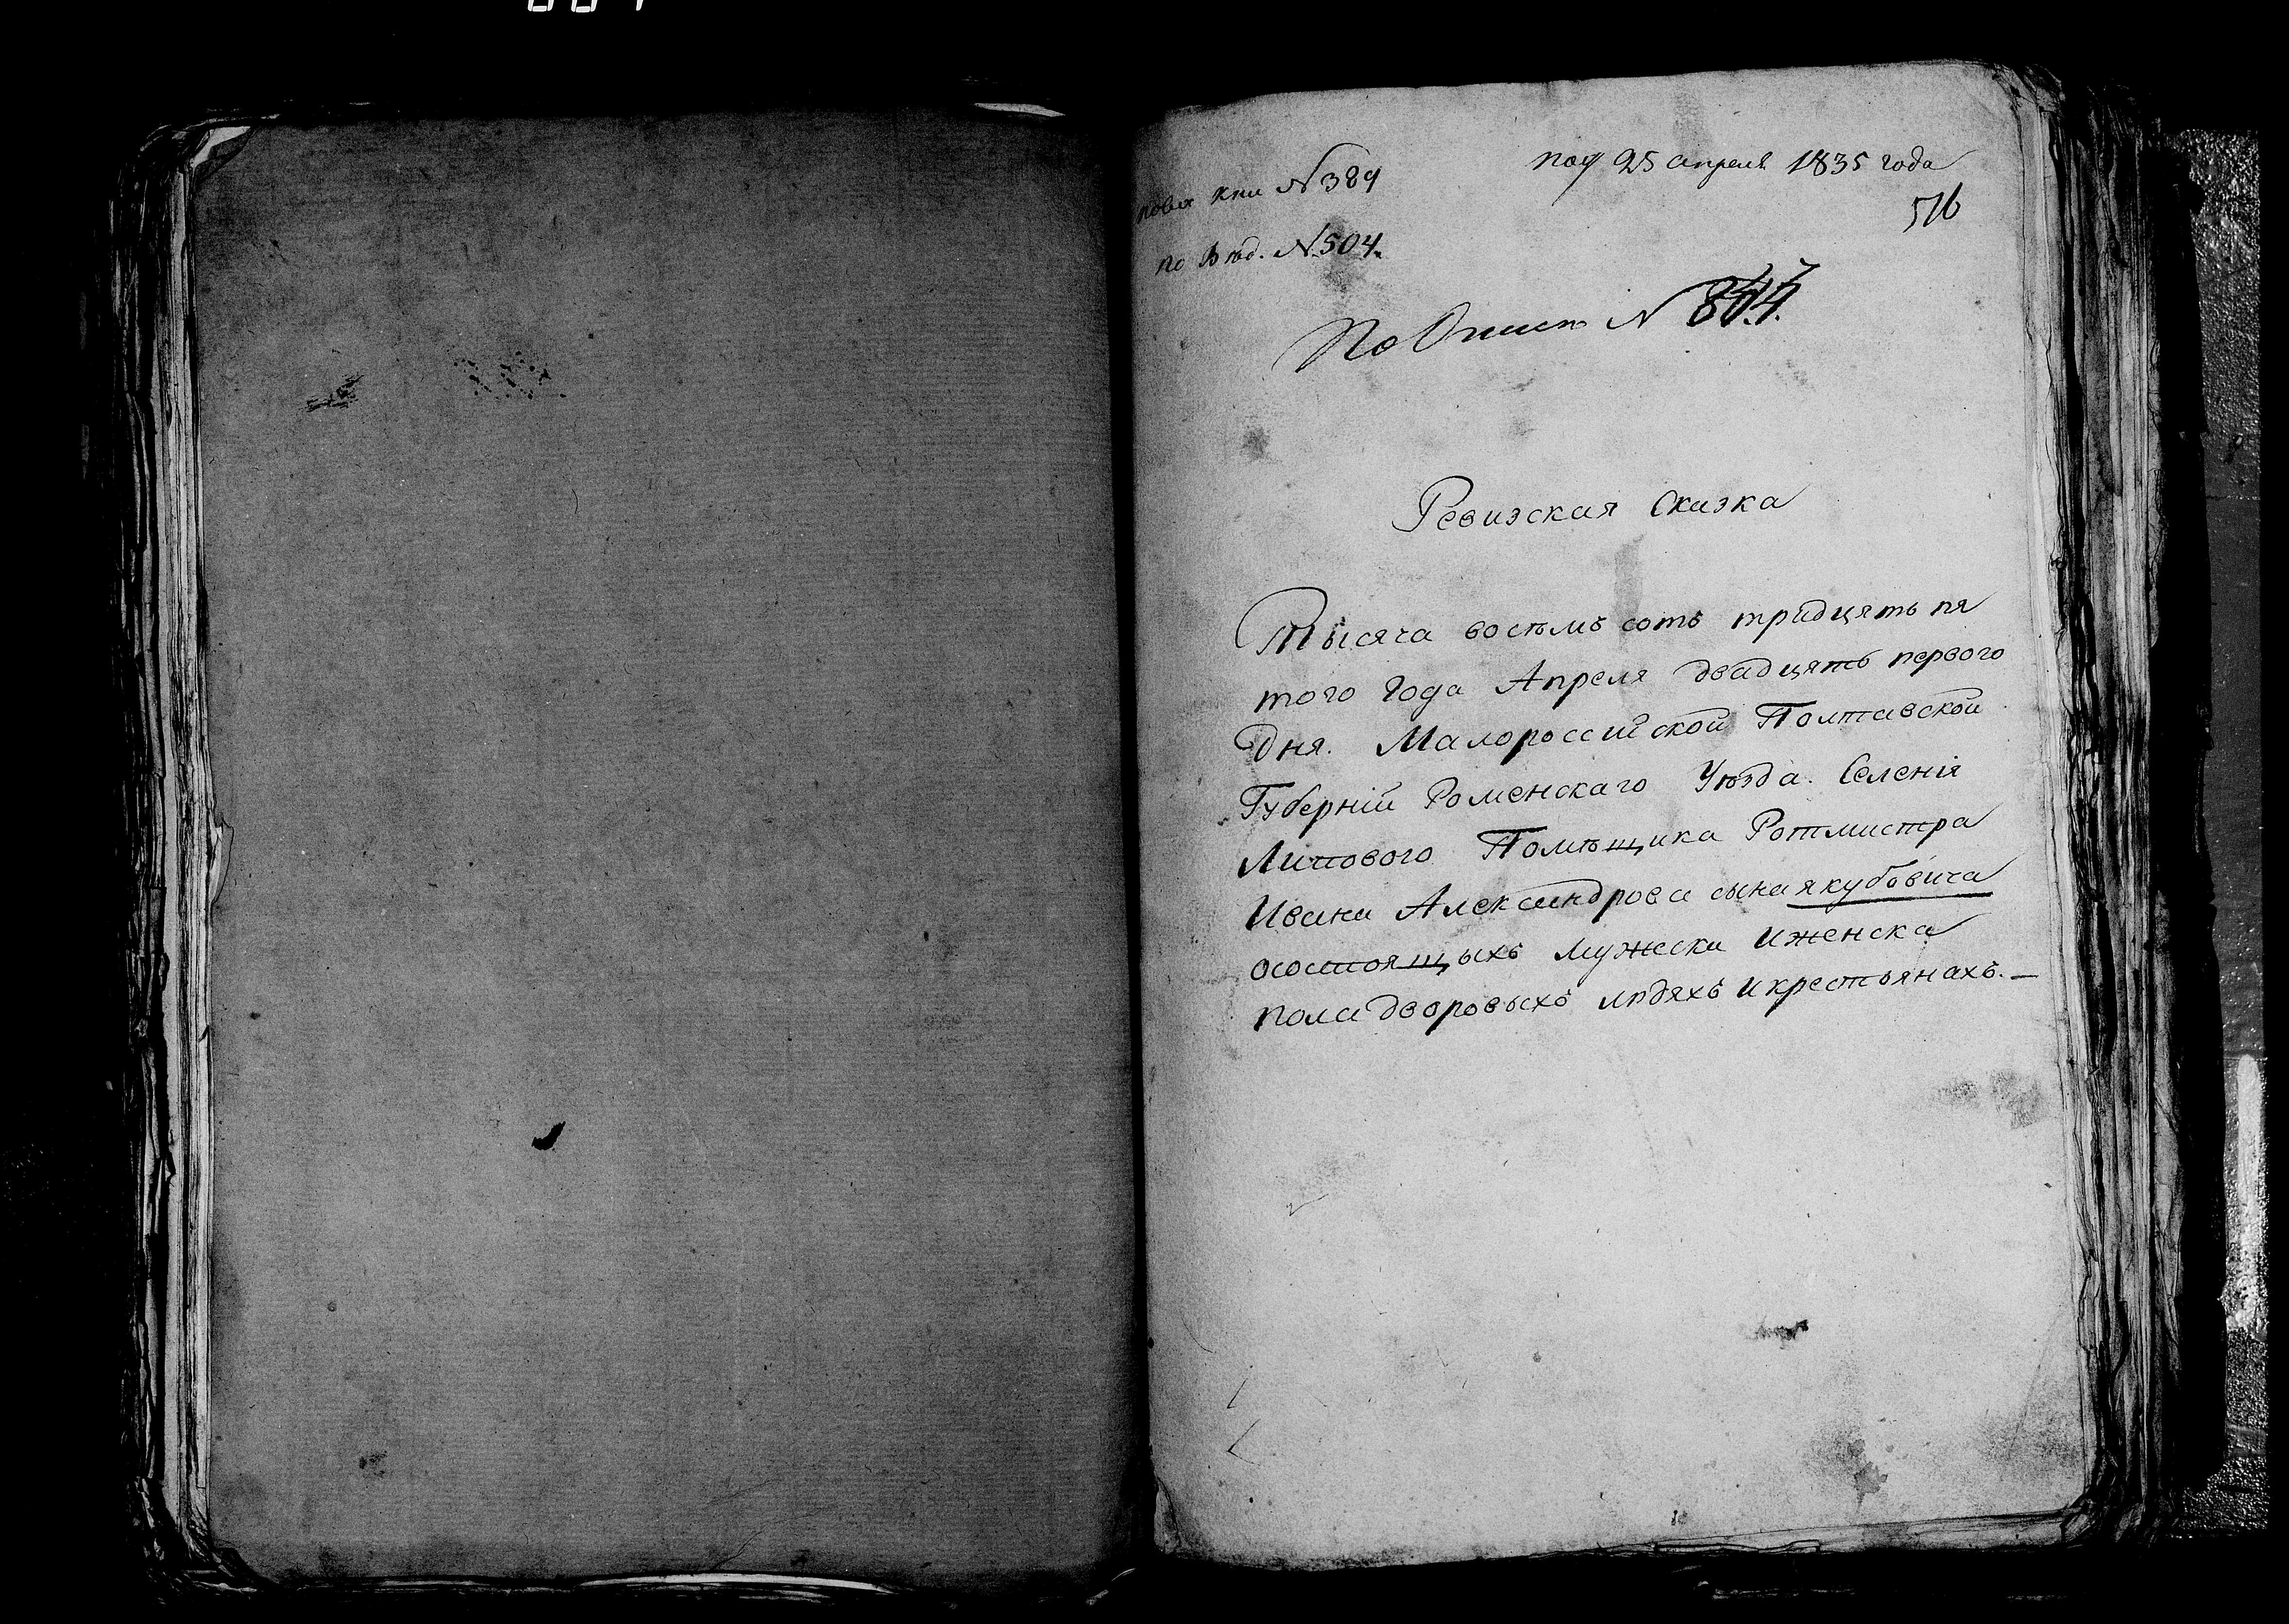 кни №389
по Вѣд. №504.
пол 25 апреля 1835 года
516
По Описи №
Ревизская Сказка
Тысяча восѣмъ сотъ тридцять пя
того Года Апреля двадцять первого
Дня. Малороссийской Полтавской
Губерніи Роменскаго Уѣзда. Селенія
Липового Помѣщика Ротмистра
Ивана Александрова сына якубовича
осостоящыхъ мужеска иженска
пола дворовыхъ людяхъ икрестьянахъ.—